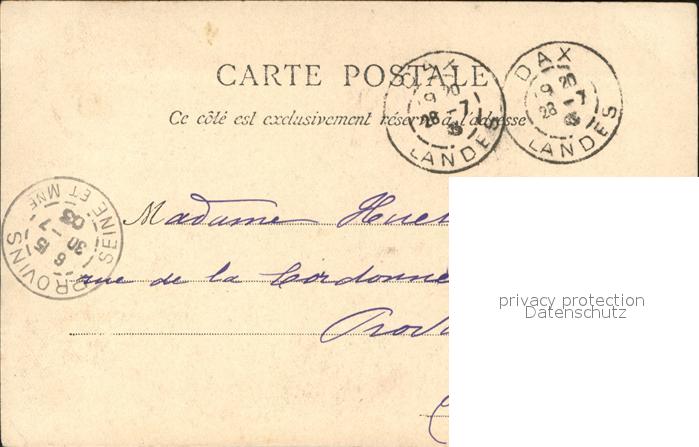 CARTE POSTALE
Ce côté est exclusivement réservé à l'adresse
DAX
9 20
28 -7
LANDES
DAX
9 20
28 -7
LANDES
SEINE ET MNE
6 15
30 -7
03
PROVINS
Madame
rue de la
privacy protection
Datenschutz